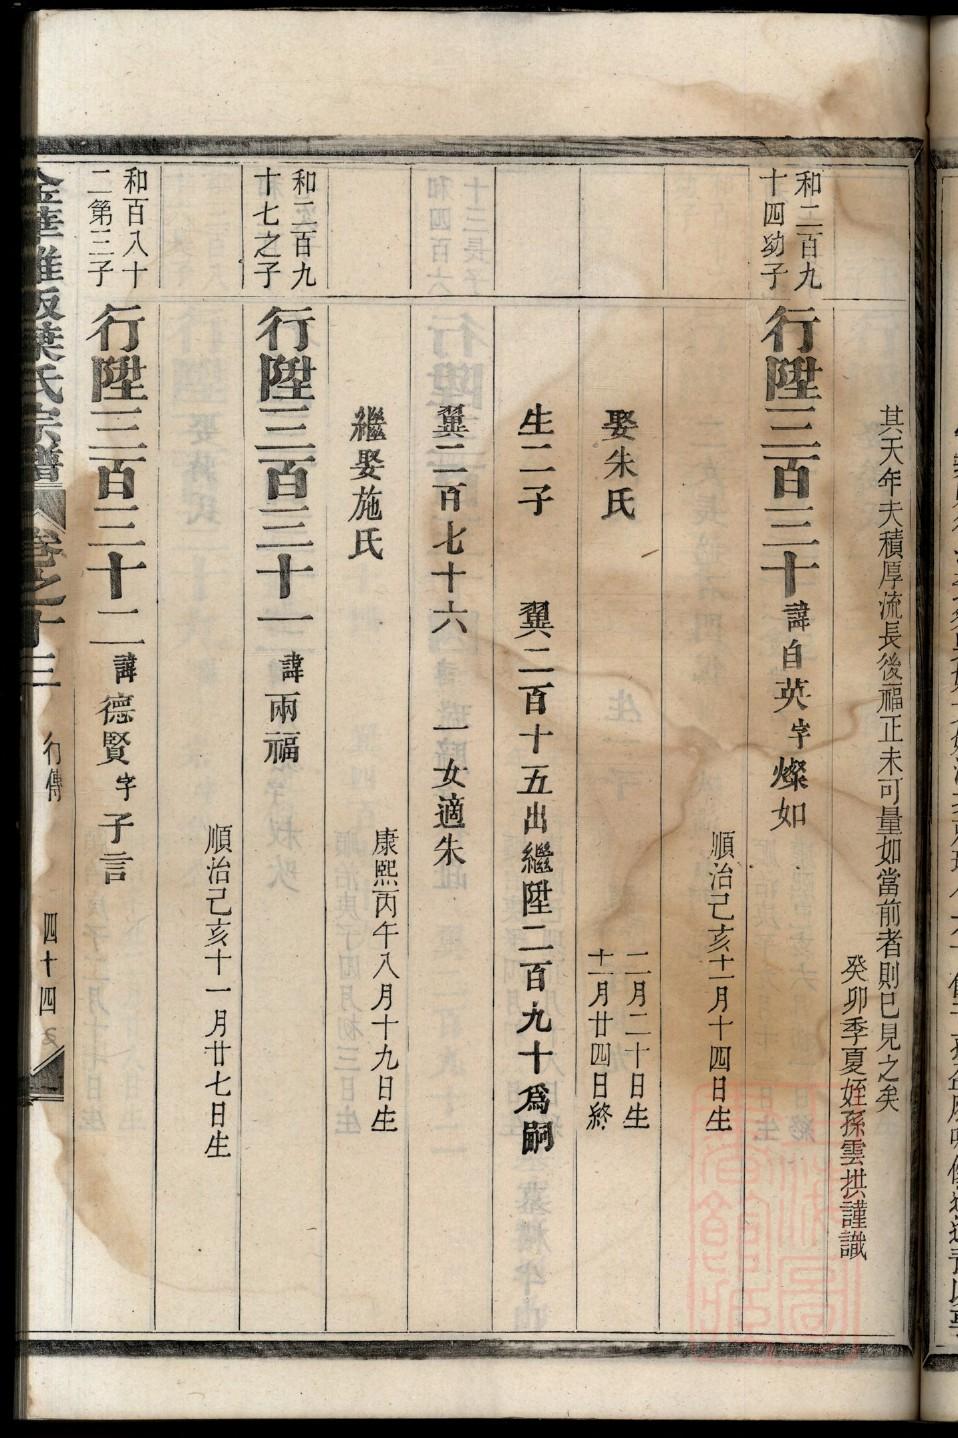 其天年夫積厚流長後福正未可量如當前者則已見之矣
癸卯季夏姪孫雲拱謹識
和二百九
十四幼子
行陞三百三十諱自英字燦如
順治己亥十一月十四日生
娶朱氏
二月二十日生
十一月廿四日終
生二子 翼二百十五出繼陞二百九十爲嗣
翼二百七十六 一女適朱
繼娶施氏
康熙丙午八月十九日生
和二百九
十七之子
行陞三百三十一諱兩福
順治己亥十一月廿七日生
和百八十
二第三子
行陞三百三十二諱德賢字子言
葉氏宗譜 卷之十三 行傳 四十四